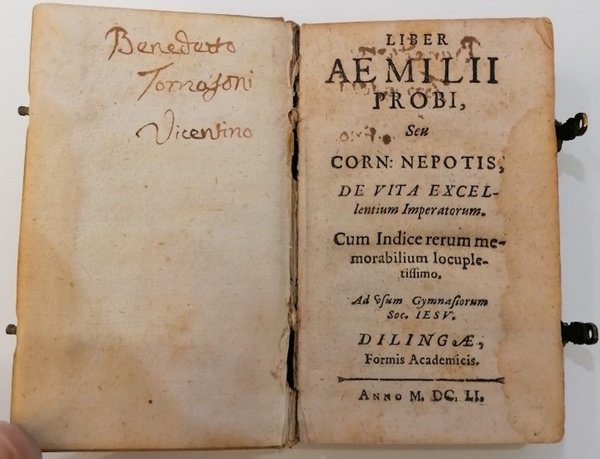 Benedetto
Tornasoni
Vicentino
LIBER
AEMILII
PROBI,
Seu
CORN: NEPOTIS,
DE VITA EXCEL-
lentium Imperatorum.
Cum Indice rerum me-
morabilium locuple-
tissimo.
Ad vsum Gymnasiorum
Soc. IESV.
DILINGÆ,
Formis Academicis.
ANNO M. DC. LI.